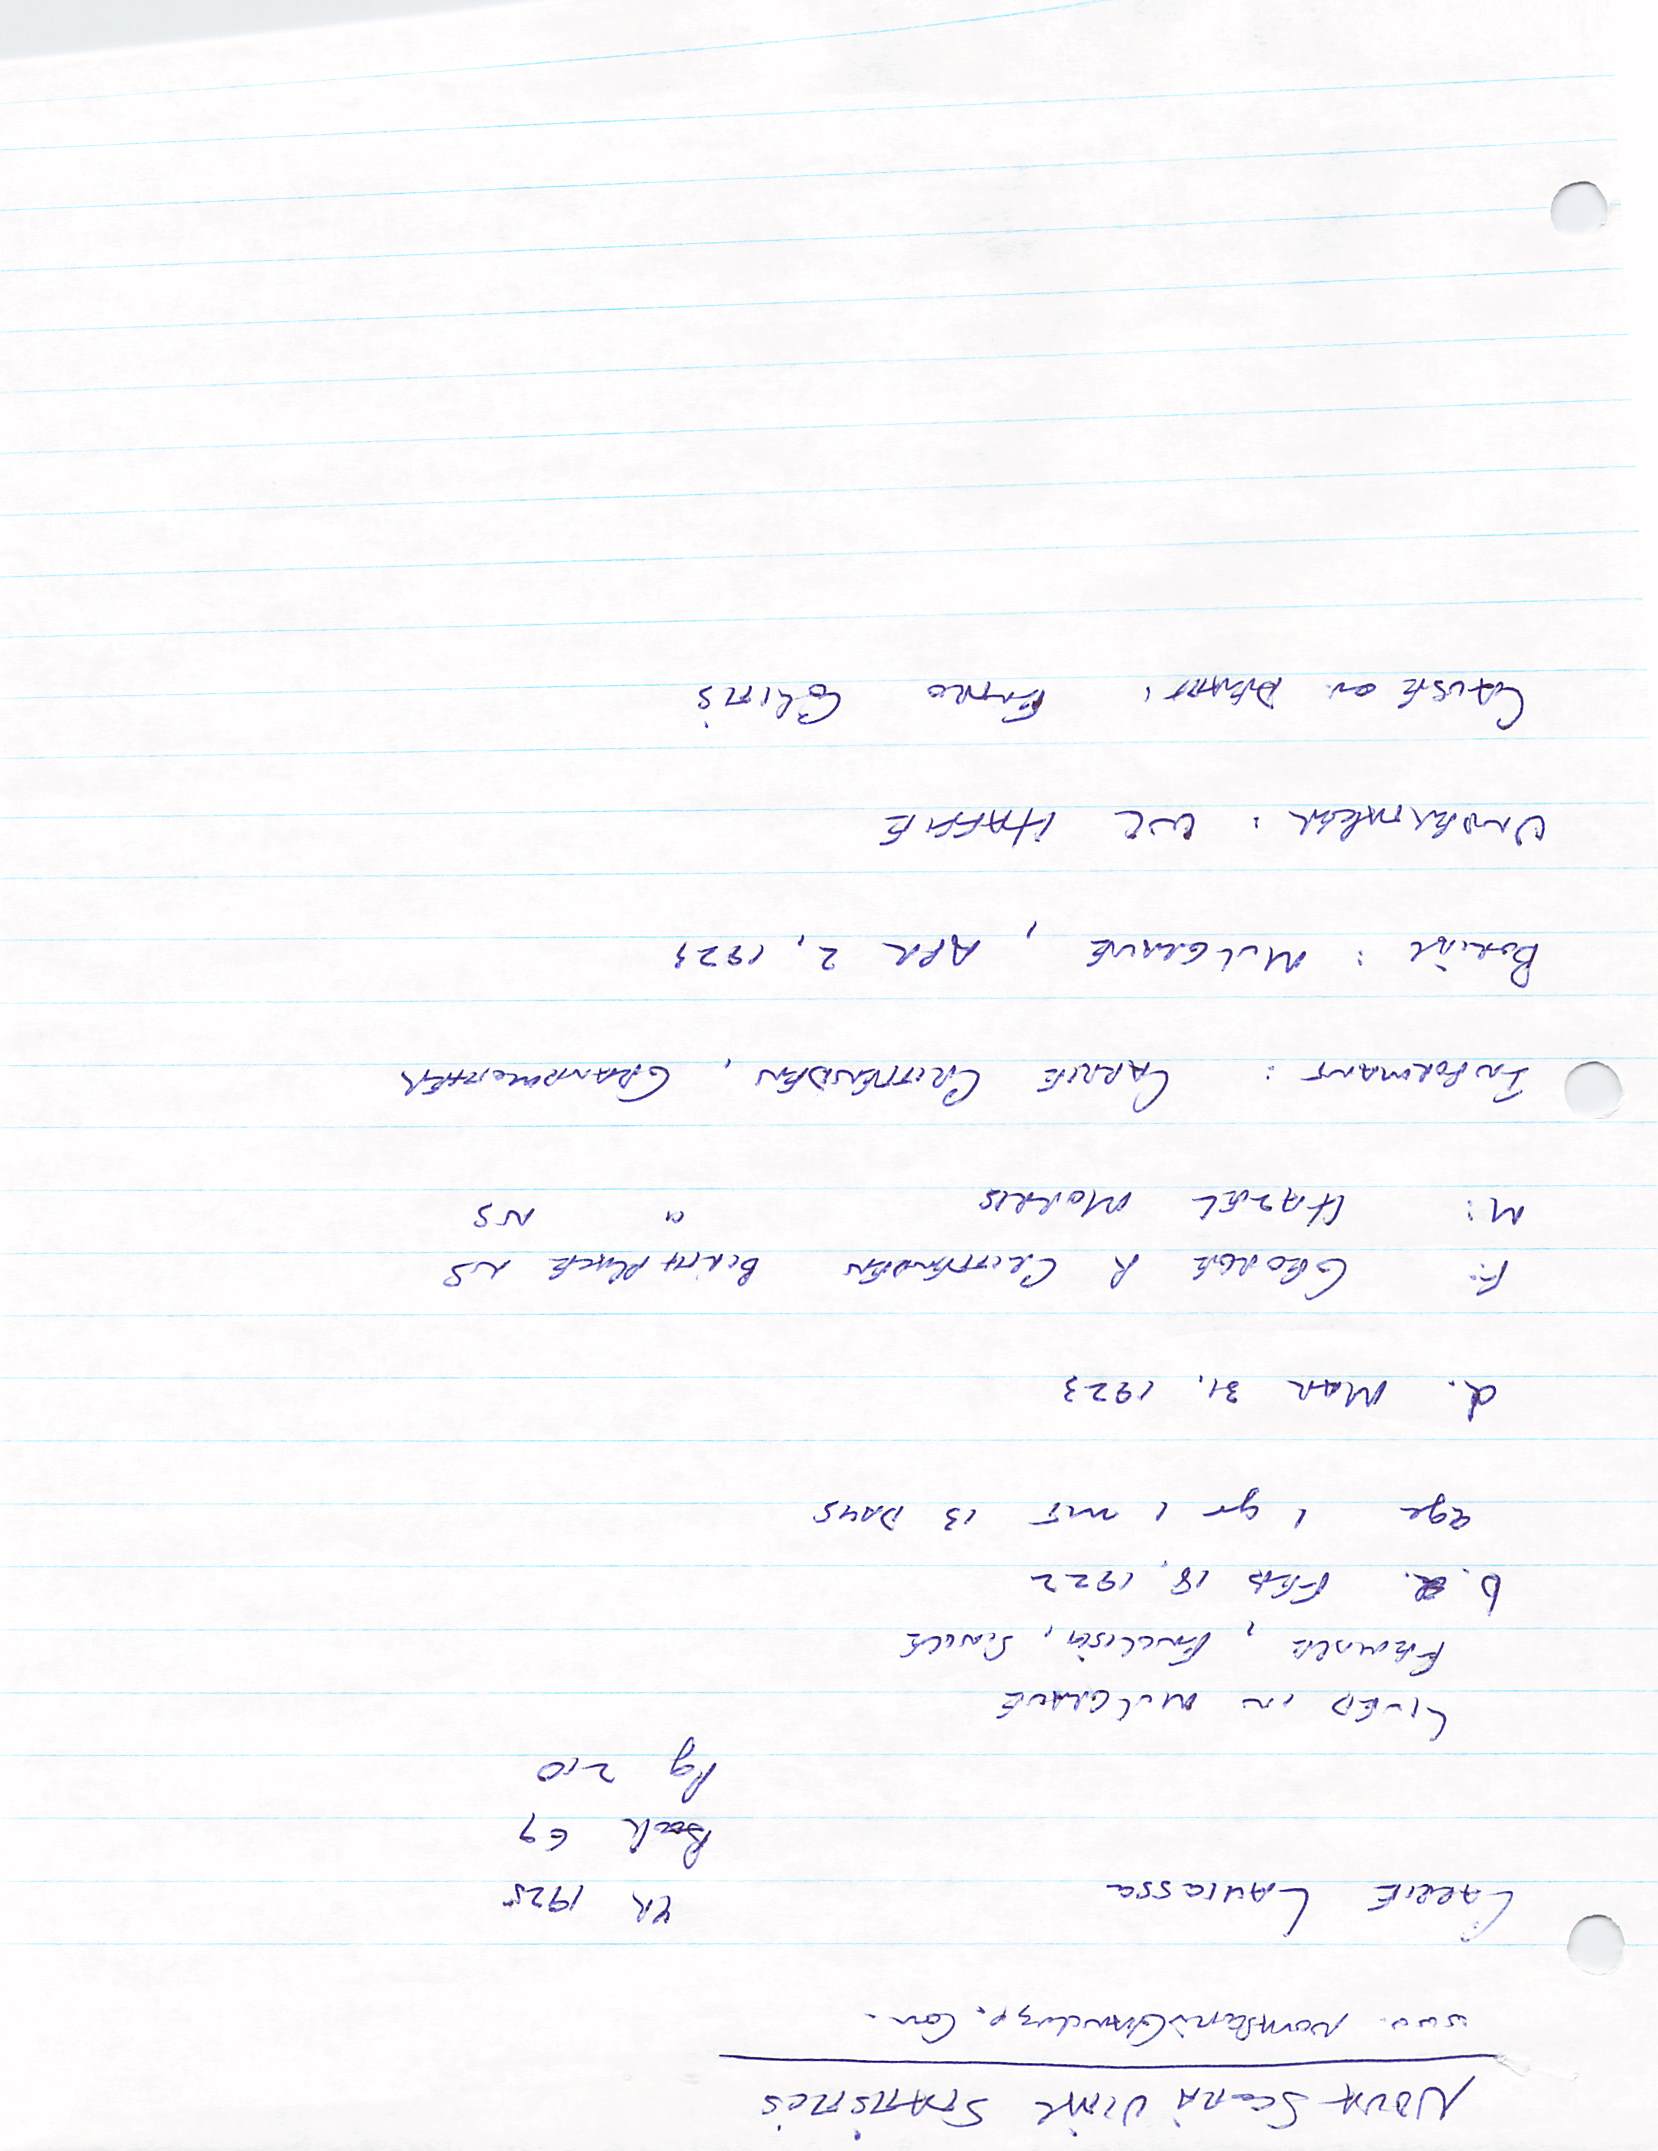 NOVA SCOTIA VITAL STATISTICS
www. NovaScotiaGenealogy. Com
CARRIE LAURASSA YR 1925
Book 69
Pg 210
LIVED IN MULGRAVE
FEMALE, ENGLISH, SINGLE
b. FEB 18, 1922
age 1 yr 1 mT 13 DAYS
d. MAR 31, 1923
F: GEORGE R CRITTENDEN BIRTH PLACE NS
M: HAZEL MORRIS " NS
INFORMANT: CARRIE CRITTENDEN, GRANDMOTHER
BURIAL: MULGRAVE, APR 2, 1923
UNDERTAKER: WL
CAUSE OF DEATH: ENTRO COLITIS